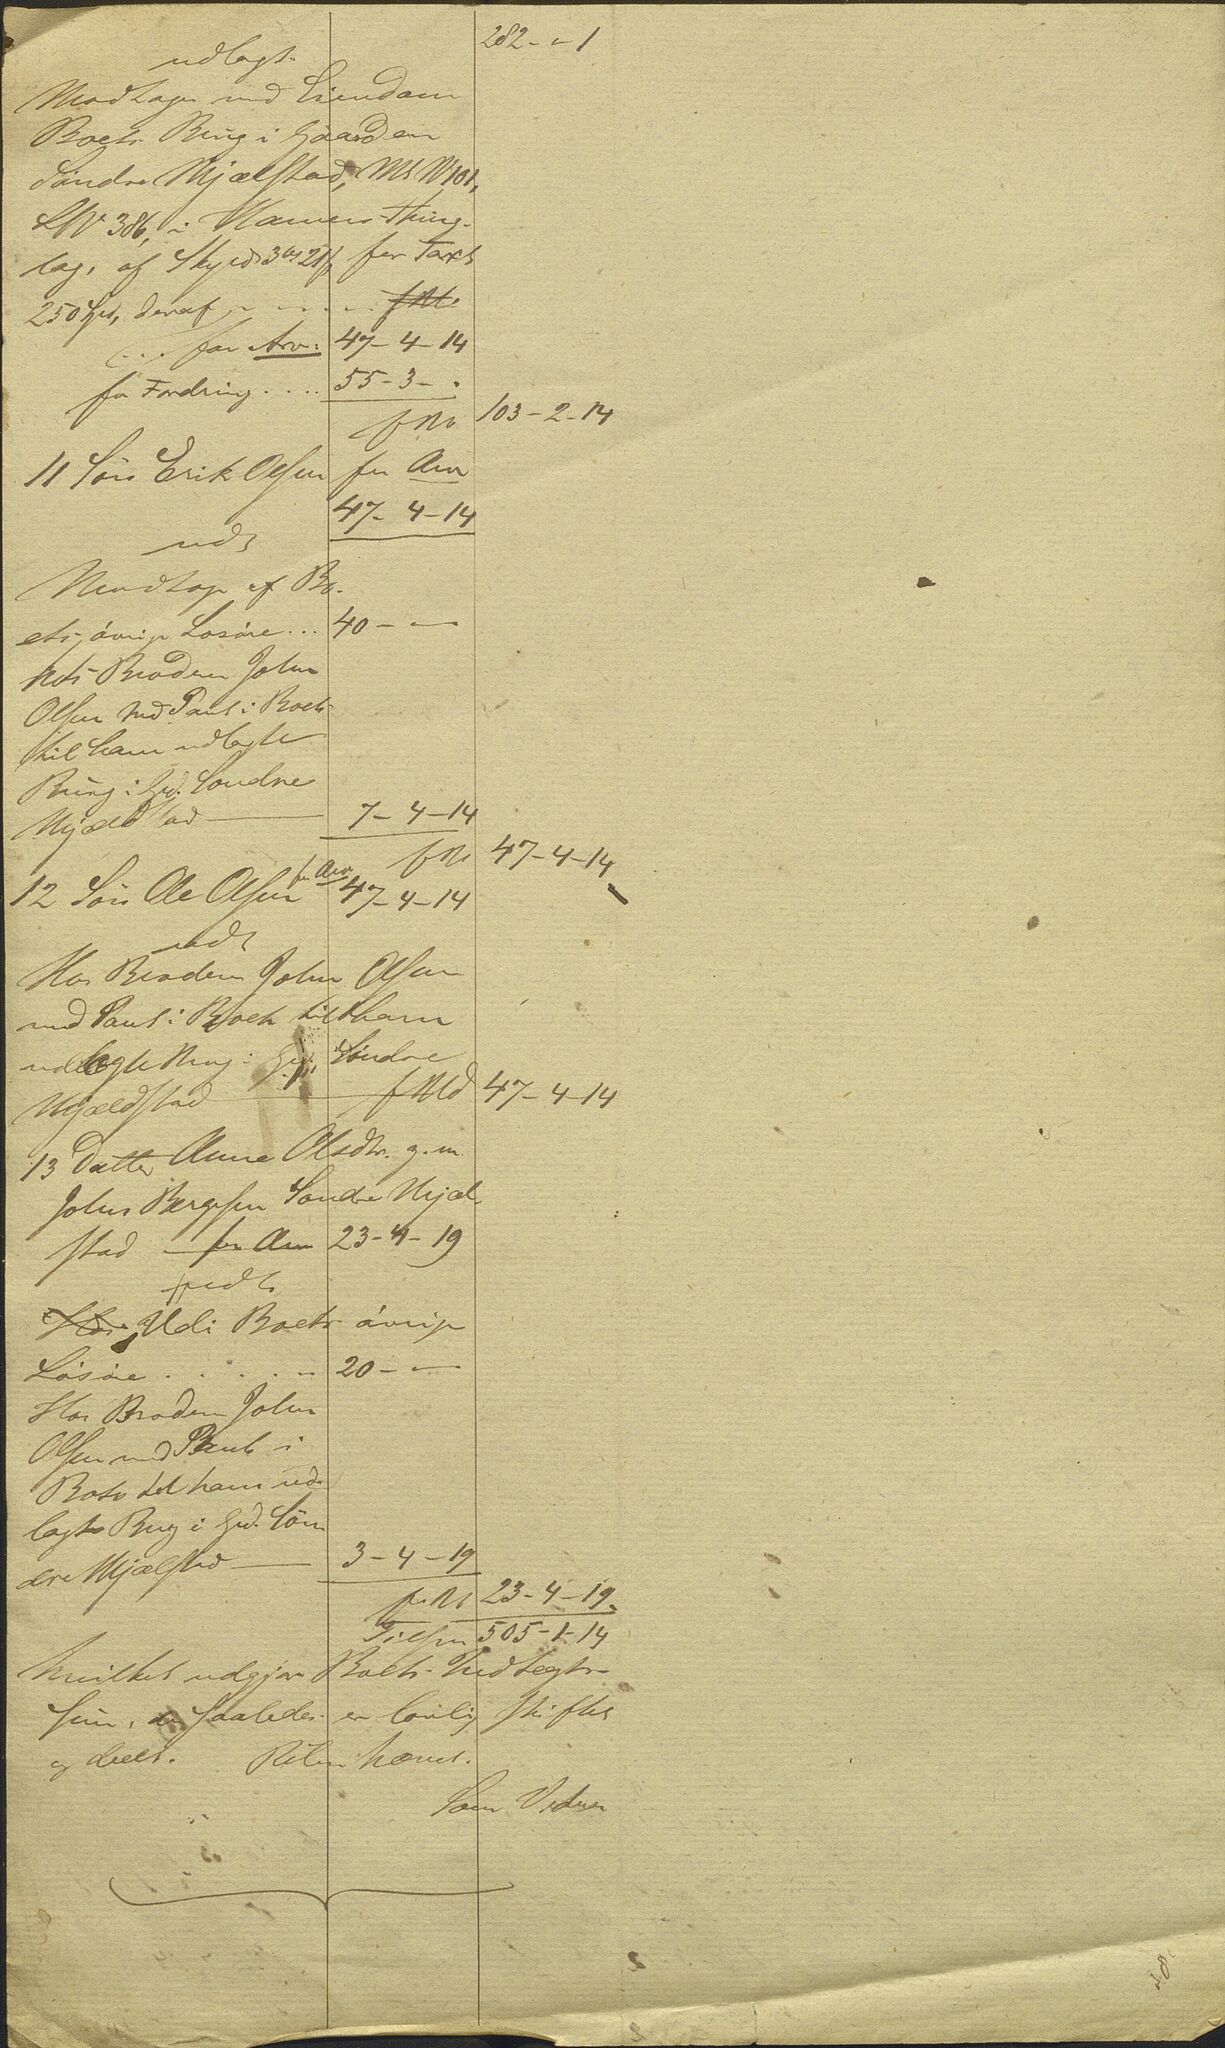 282 - " - 1
udlagt.
Modtager med Eiendom
Boets Brug i Gaarden
Søndre Mjælstad, Mt N 101,
LN 386, i Hamers Thing-
lag, af Skyld 3 21 β, for Taxt
250 Spd, deraf
for Arv: 47 - 4 - 14
for Fordring .... 55 - 3 - "
103 - 2 - 14
11 Søn Erik Olsen for Arv
47 - 4 - 14
udl
Modtager af Bo-
ets øvrige Løsøre ... 40 - "
hos Broderen John
Olsen med Pant i Boets
til ham udlagte
Brug i Grd. Søndre
Mjældstad 7 - 4 - 14
47 - 4 - 14
12 Søn Ole Olsen for Arv 47 - 4 - 14
udl
Hos Broderen John Olsen
med Pant i Boets til ham
udlagte Brug i Søndre
Mjældstad 47 - 4 - 14
13 Datter Anne Olsdtr. g. m.
John Bergesen Søndre Mjæl-
stad for Arv 23 - 4 - 19
udl
Hos Udi Boets øvrige
Løsøre ..... 20 - "
Hos Broderen John
Olsen med Pant i
Boets til ham ud-
lagte Brug i Grd. Søn-
dre Mjælstad 3 - 4 - 19
23 - 4 - 19
Tilsm 505 - 1 - 14
hvilket udgjør Boets Indtægts-
Sum, der saaledes er lovlig skiftet
og deelt. Retten hævet.
Som Vidner